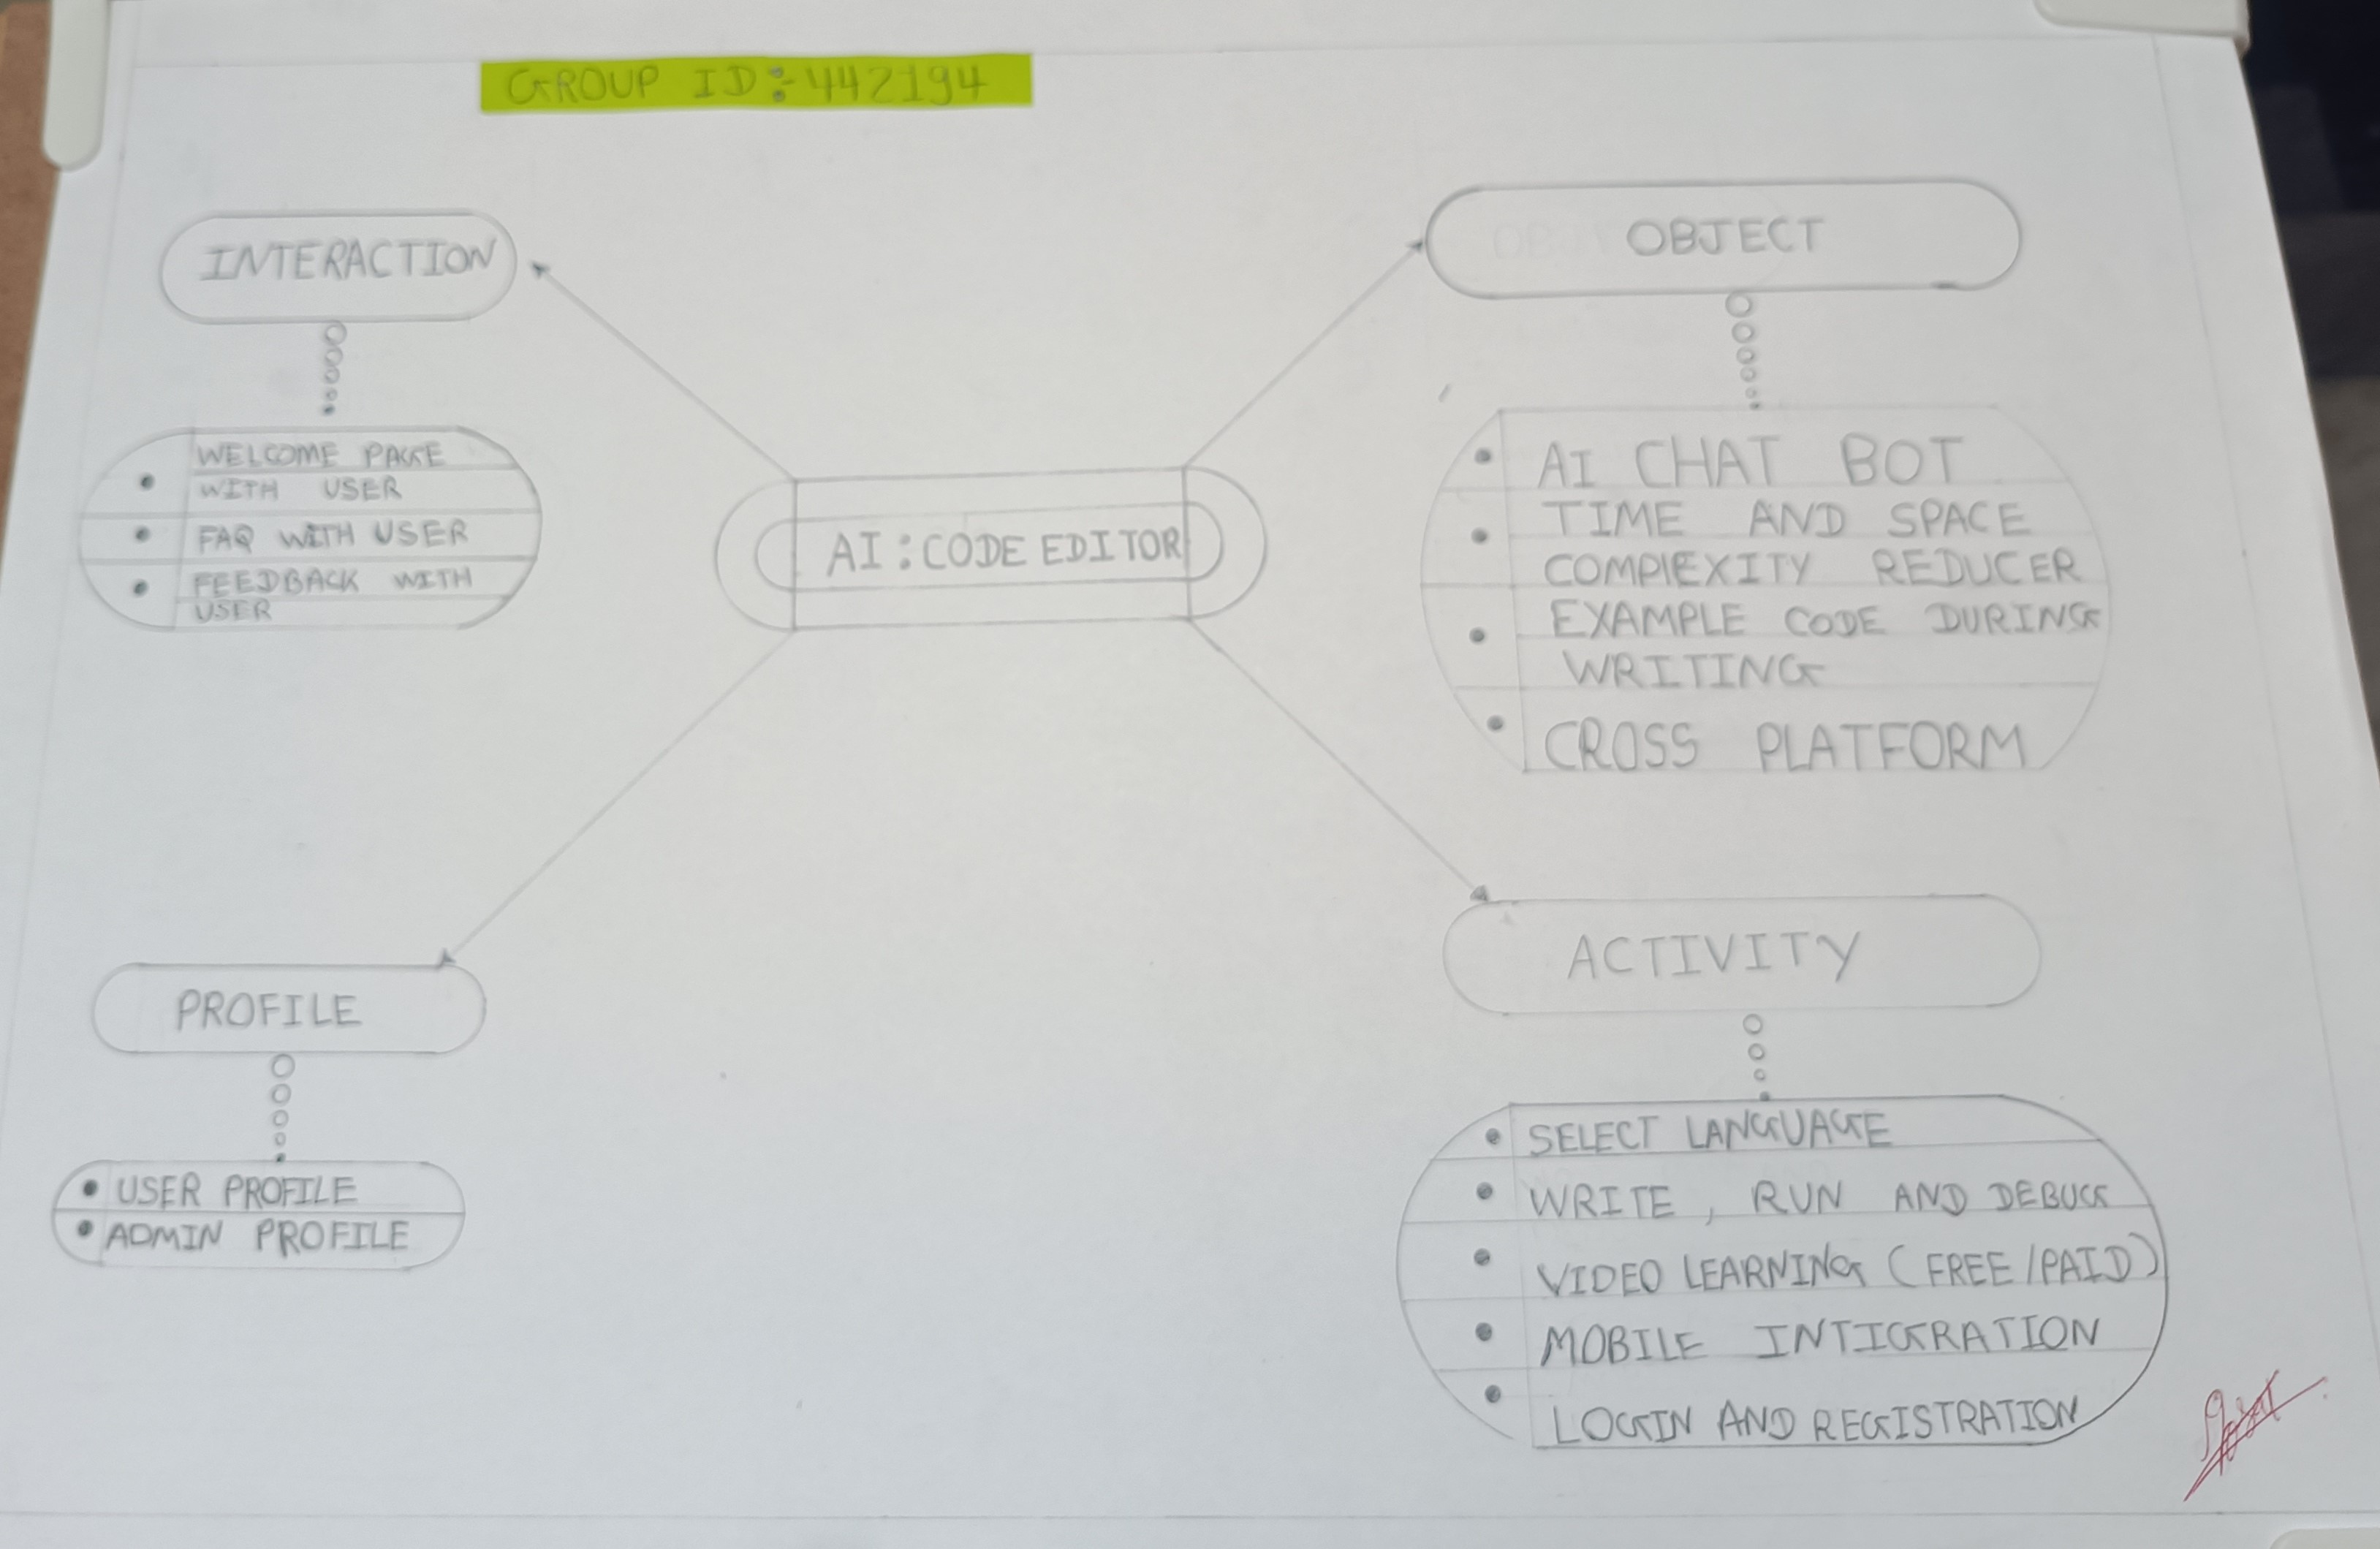 GROUP ID:-442194
INTERACTION
WELCOME PAGE
WITH USER
FAQ WITH USER
FEEDBACK WITH
USER
OBJECT
AI CHAT BOT
TIME AND SPACE
COMPlEXITY REDUCER
EXAMPLE CODE DURING
WRITING
CROSS PLATFORM
AI:CODE EDITOR
PROFILE
USER PROFILE
ADMIN PROFILE
ACTIVITY
SELECT LANGUAGE
WRITE, RUN AND DEBUG
VIDEO LEARNING (FREE/PAID)
MOBILE INTIGRATION
LOGIN AND REGISTRATION